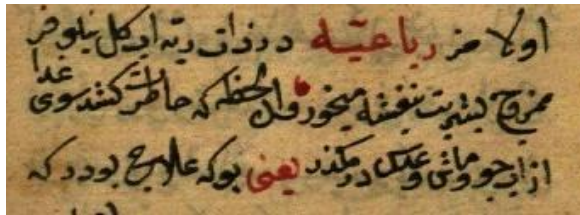 اولا مز رباعیته در ذات ریه ایدکل نیلوفر
ممزوج بشربت بنفشه میخور وان لحظه که خاطرت کشد سوی غذا
از آب جو و ماش و عدس در مگذر یعنی بو که علاج بودر که